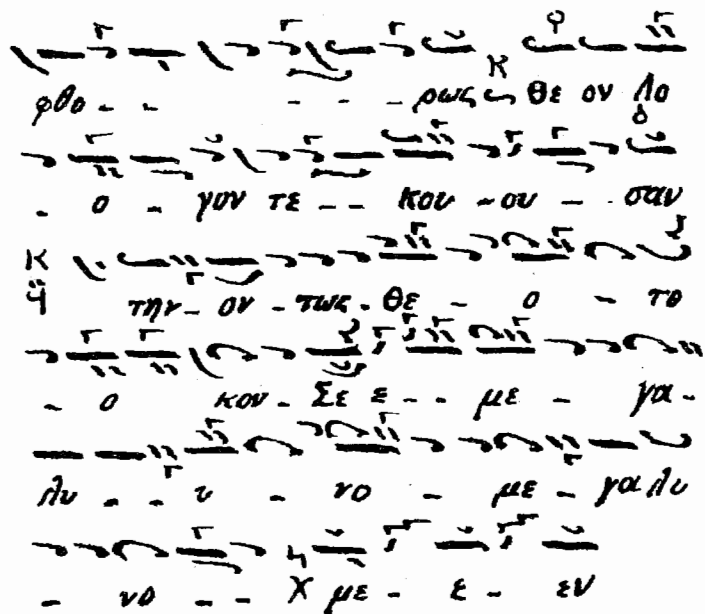 φθο - - - - - ρως Θε ον Λο
- ο - γον τε - - κου - ου - σαν
την - ον - τως - Θε - ο - το
- ο κον - Σε ε - - με - γα -
λυ - - υ - νο - με - γα λυ
- νο - - με - ε - εν